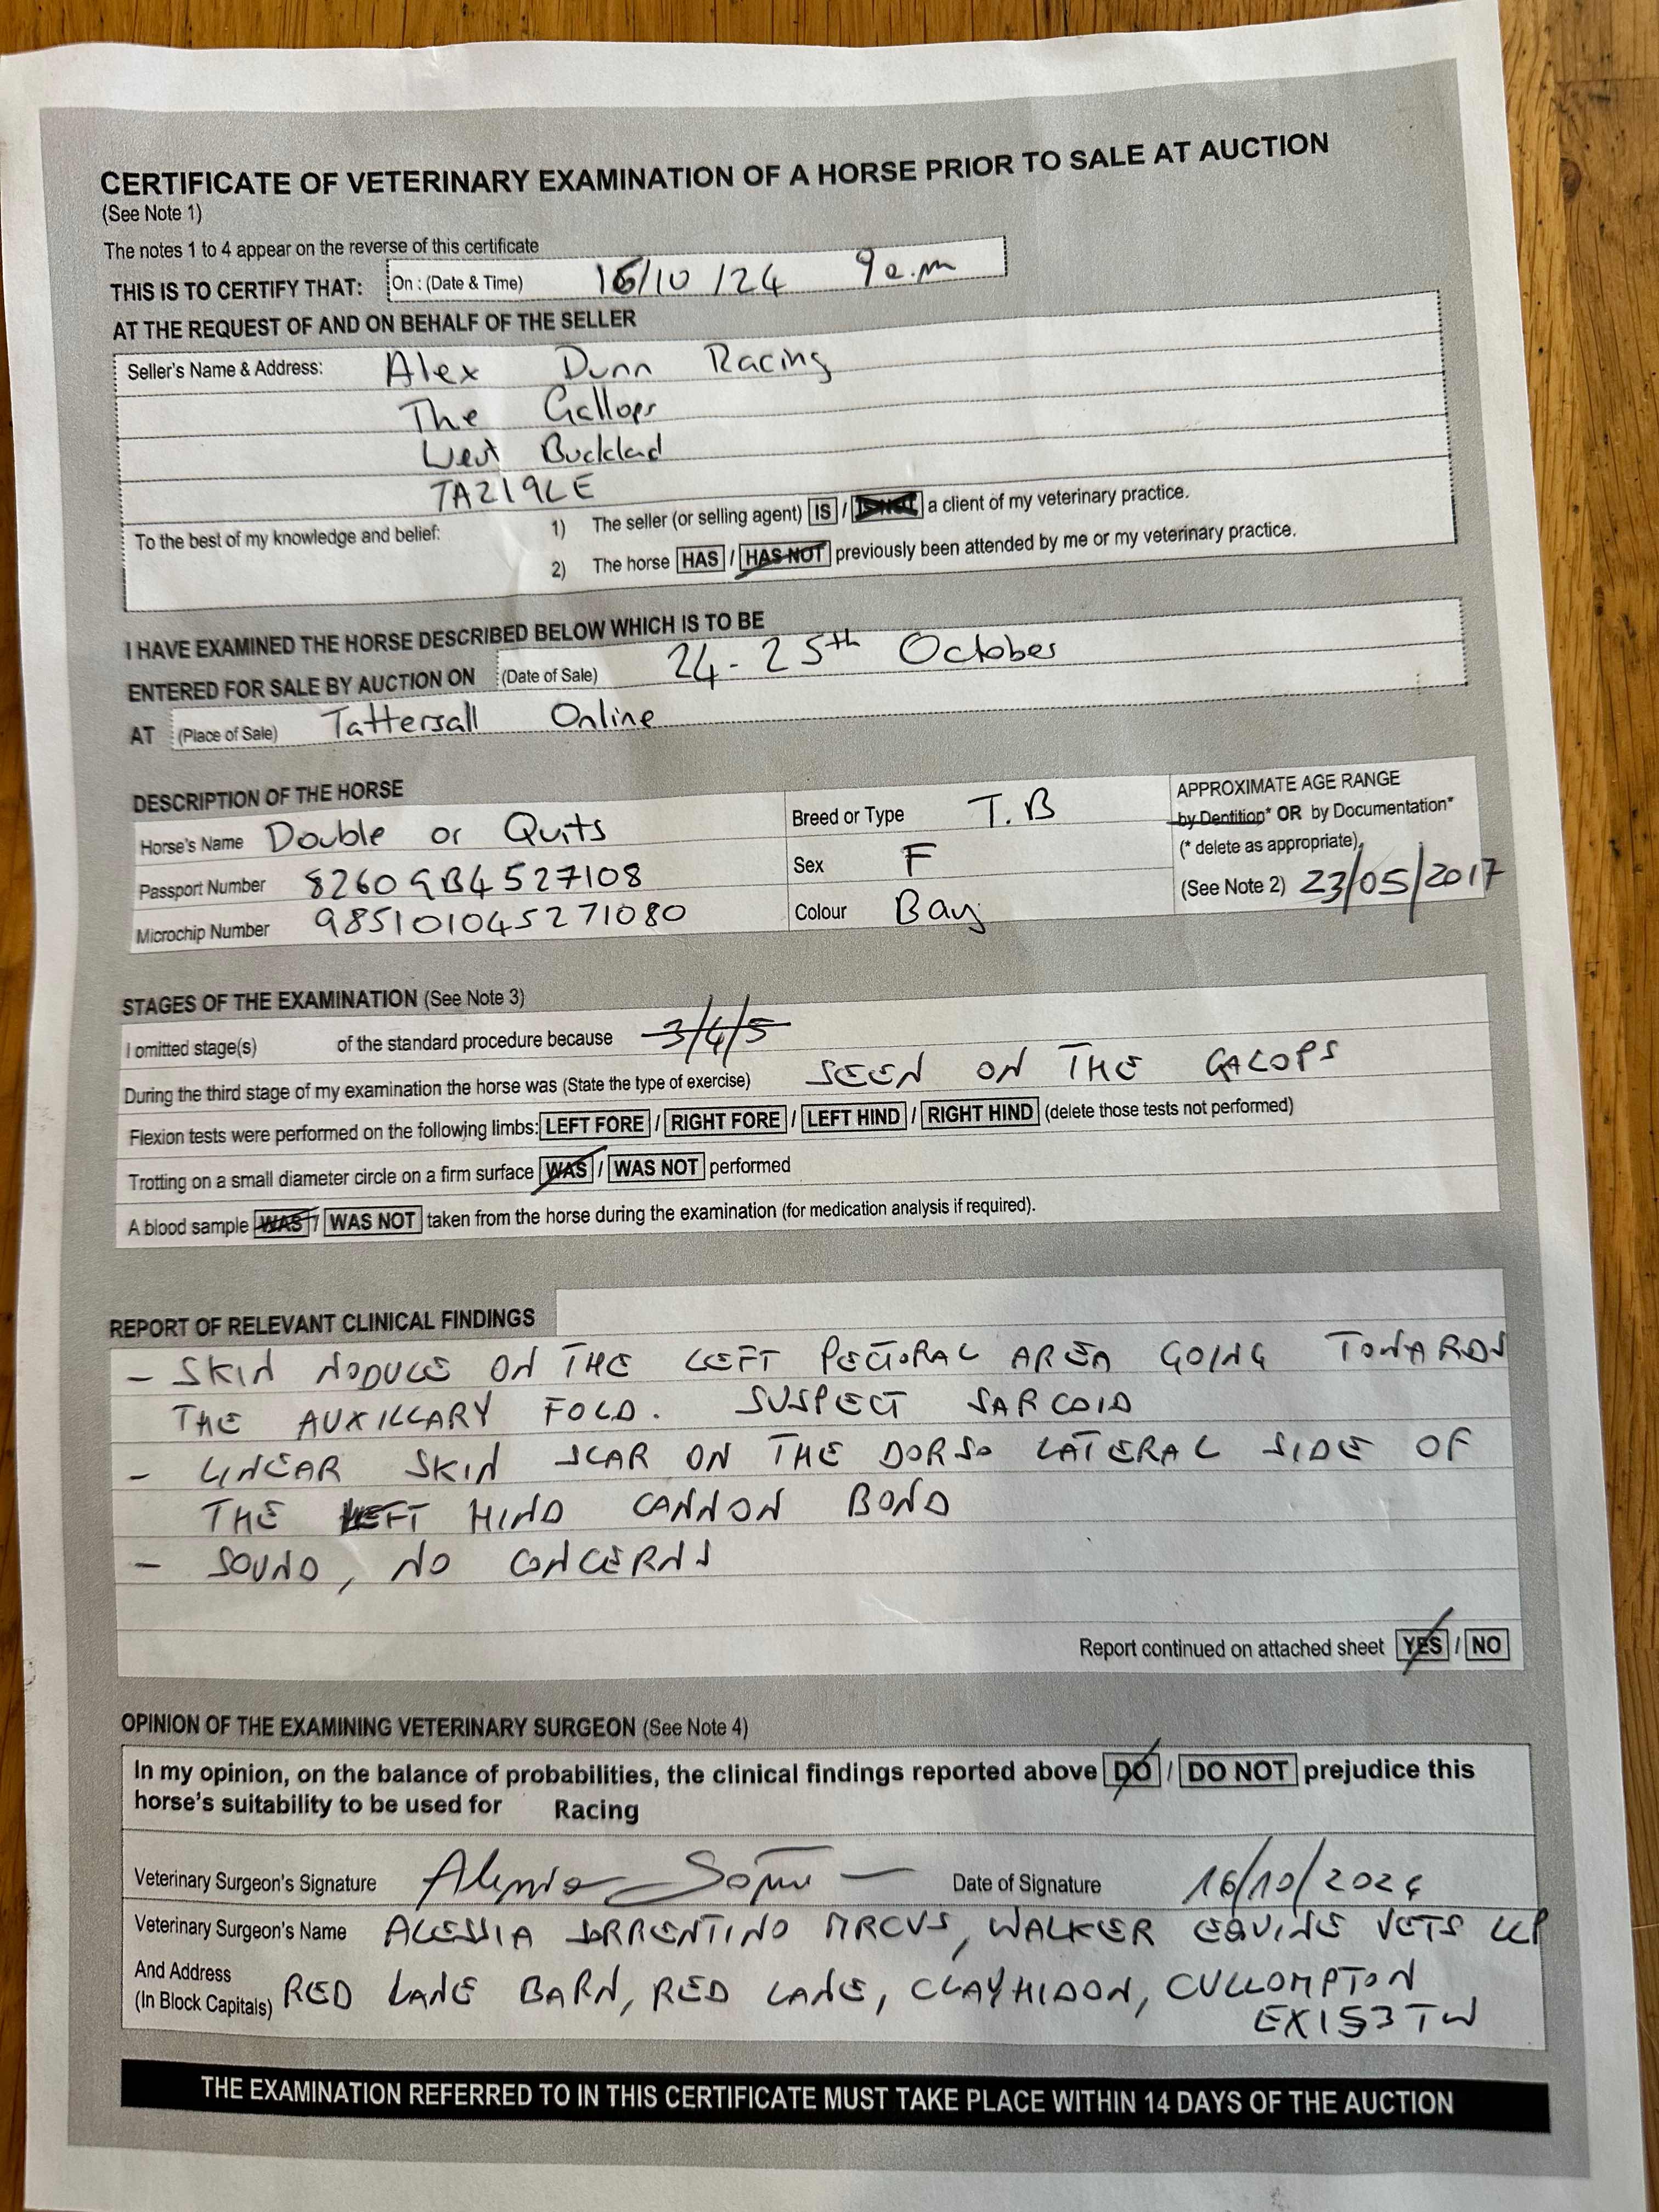 CERTIFICATE OF VETERINARY EXAMINATION OF A HORSE PRIOR TO SALE AT AUCTION
(See Note 1)
The notes 1 to 4 appear on the reverse of this certificate
THIS IS TO CERTIFY THAT: On : (Date & Time) 16/10/24 9a.m
AT THE REQUEST OF AND ON BEHALF OF THE SELLER
Seller's Name & Address: Alex Dunn Racing
The Gallops
West Buckland
TA219LE
To the best of my knowledge and belief: 1) The seller (or selling agent) IS / IS NOT a client of my veterinary practice.
2) The horse HAS / HAS NOT previously been attended by me or my veterinary practice.
I HAVE EXAMINED THE HORSE DESCRIBED BELOW WHICH IS TO BE
ENTERED FOR SALE BY AUCTION ON (Date of Sale) 24-25th October
AT (Place of Sale) Tattersall Online
DESCRIPTION OF THE HORSE
Horse's Name Double or Quits
Passport Number 8260GB4527108
Microchip Number 985101045271080
Breed or Type T.B
Sex F
Colour Bay
APPROXIMATE AGE RANGE
by Dentition* OR by Documentation*
(* delete as appropriate)
(See Note 2) 23/05/2017
STAGES OF THE EXAMINATION (See Note 3)
I omitted stage(s) of the standard procedure because 3/4/5
During the third stage of my examination the horse was (State the type of exercise) SEEN ON THE GALOPS
Flexion tests were performed on the following limbs: LEFT FORE / RIGHT FORE / LEFT HIND / RIGHT HIND (delete those tests not performed)
Trotting on a small diameter circle on a firm surface WAS / WAS NOT performed
A blood sample WAS / WAS NOT taken from the horse during the examination (for medication analysis if required).
REPORT OF RELEVANT CLINICAL FINDINGS
- SKIN NODULE ON THE LEFT PECTORAL AREA GOING TOWARDS
THE AUXILLARY FOLD. SUSPECT SARCOID
- LINEAR SKIN SCAR ON THE DORSO LATERAL SIDE OF
THE LEFT HIND CANNON BOND
- SOUND, NO CONCERNS
Report continued on attached sheet YES / NO
OPINION OF THE EXAMINING VETERINARY SURGEON (See Note 4)
In my opinion, on the balance of probabilities, the clinical findings reported above DO / DO NOT prejudice this
horse's suitability to be used for Racing
Veterinary Surgeon's Signature Date of Signature 16/10/2024
Veterinary Surgeon's Name ALESSIA SORRENTINO MRCVS, WALKER EQUINE VETS LLP
And Address
(In Block Capitals) RED LANE BARN, RED LANE, CLAYHIDON, CULLOMPTON
EX153TW
THE EXAMINATION REFERRED TO IN THIS CERTIFICATE MUST TAKE PLACE WITHIN 14 DAYS OF THE AUCTION